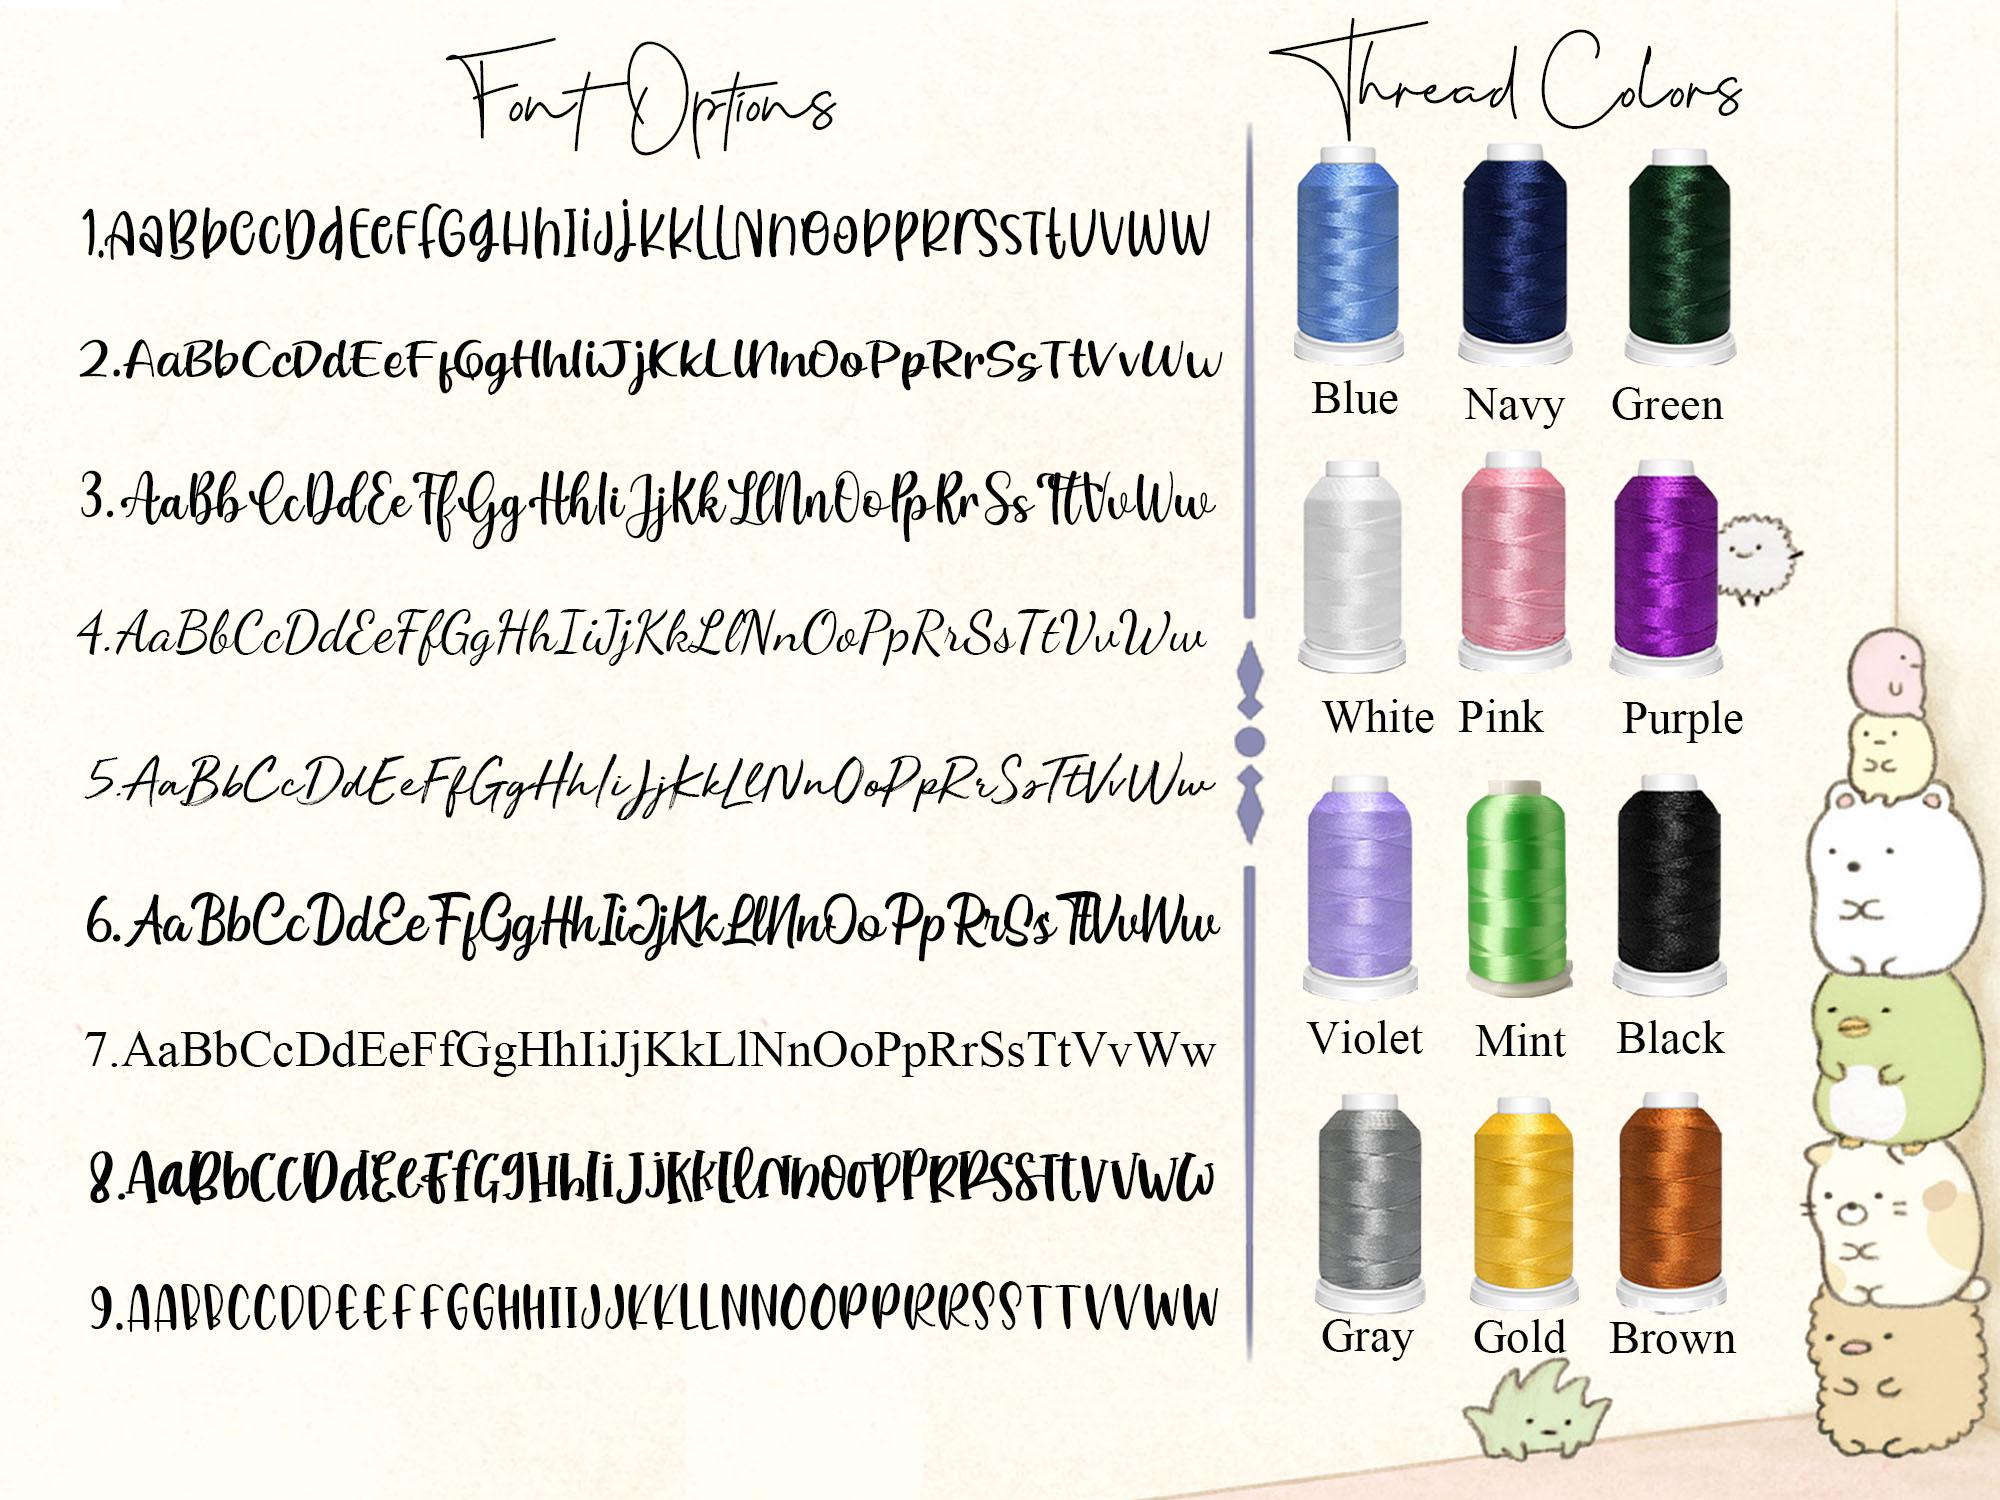 Font Options
1.AaBbCcDdEeFfGgHhIiJjKkLlNnOoPpRrSsTtUvWw
2.AaBbCcDdEeFfGgHhIiJjKkLlNnOoPpRrSsTtVvWw
3.AaBbCcDdEeFfGgHhIiJjKkLlNnOoPpRrSsTtVvWw
4.AaBbCcDdEeFfGgHhIiJjKkLlNnOoPpRrSsTtVvWw
5.AaBbCcDdEeFfGgHhIiJjKkLlNnOoPpRrSsTtVvWw
6.AaBbCcDdEeFfGgHhIiJjKkLlNnOoPpRrSsTtVvWw
7.AaBbCcDdEeFfGgHhIiJjKkLlNnOoPpRrSsTtVvWw
8.AaBbCcDdEeFfGgHhIiJjKkLlNnOoPPRRSSTtVVWW
9.AABBCCDDEEFFGGHHIIJJKKLLNNOOPPRRSSTTVVWW
Thread Colors
Blue Navy Green
White Pink Purple
Violet Mint Black
Gray Gold Brown